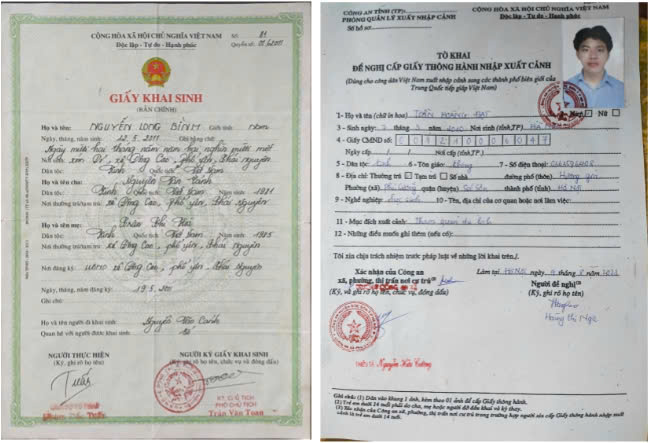 CỘNG HÒA XÃ HỘI CHỦ NGHĨA VIỆT NAM
Độc lập - Tự do - Hạnh phúc
Số: 81
Quyển số: 01/2011
GIẤY KHAI SINH
(BẢN CHÍNH)
Họ và tên: NGUYỄN LONG BÌNH Giới tính: Nam
Ngày, tháng, năm sinh: 12.5.2011 Ghi bằng chữ:
Ngày mười hai tháng năm năm hai nghìn mười một
Nơi sinh: xã Đông Cao, phổ yên, thái nguyên
Dân tộc: Kinh Quốc tịch: Việt Nam
Họ và tên cha: Nguyễn Văn Cảnh
Dân tộc: Kinh Quốc tịch: Việt Nam Năm sinh: 1981
Nơi thường trú/tạm trú: xã Đông Cao, phổ yên, thái nguyên
Họ và tên mẹ: Trần Thị
Dân tộc: Kinh Quốc tịch: Việt Nam Năm sinh: 1985
Nơi thường trú/tạm trú: xã Đông Cao, phổ yên, thái nguyên
Nơi đăng ký: UBND xã Đông Cao, phổ yên, thái nguyên
Ngày, tháng, năm đăng ký: 19.5.2011
Ghi chú:
Họ và tên người đi khai sinh: Nguyễn Văn Cảnh
Quan hệ với người được khai sinh: Bố
NGƯỜI THỰC HIỆN
(Ký, ghi rõ họ tên)
NGƯỜI KÝ GIẤY KHAI SINH
(Ký, ghi rõ họ tên, chức vụ và đóng dấu)
KT. CHỦ TỊCH
PHÓ CHỦ TỊCH
Trần Văn Toan
CÔNG AN TỈNH (TP):
PHÒNG QUẢN LÝ XUẤT NHẬP CẢNH
Số hồ sơ:
CỘNG HÒA XÃ HỘI CHỦ NGHĨA VIỆT NAM
Độc lập - Tự do - Hạnh phúc
TỜ KHAI
ĐỀ NGHỊ CẤP GIẤY THÔNG HÀNH NHẬP XUẤT CẢNH
(Dùng cho công dân Việt Nam xuất nhập cảnh sang các thành phố biên giới của
Trung Quốc tiếp giáp Việt Nam)
1- Họ và tên (chữ in hoa) TRẦN HOÀNG ĐẠT Nam Nữ
3 - Sinh ngày tháng năm 2010 Nơi sinh (tỉnh,TP) Hà
4 - Giấy CMND số
Ngày cấp / /
5 - Dân tộc: Kinh 6 - Tôn giáo: Không 7 - Số điện thoại:
8 - Địa chỉ: Thường trú Tạm trú Số nhà đường phố (thôn)
Phường (xã) quận (huyện) thành phố (tỉnh) Hà Nội
9 - Nghề nghiệp: học sinh 10 - Tên, địa chỉ của cơ quan hoặc nơi làm việc:
11 - Mục đích xuất cảnh: Tham quan du lịch
12 - Những điều muốn ghi thêm (nếu có):
Tôi xin chịu trách nhiệm trước pháp luật về những lời khai trên./.
Làm tại Hà Nội ngày
Xác nhận của Công an
xã, phường, thị trấn nơi cư trú
(Ký, và ghi rõ họ tên, chức vụ, đóng dấu)
Người đề nghị
(Ký, và ghi rõ họ tên)
Hoàng Thị Nga
Nguyễn Hữu Cường
Ghi chú: (1) Dán vào khung 1 ảnh, kèm theo 01 ảnh để cấp Giấy thông hành.
(2) Trẻ em dưới 14 tuổi phải do cha, mẹ hoặc người đỡ đầu khai và ký thay.